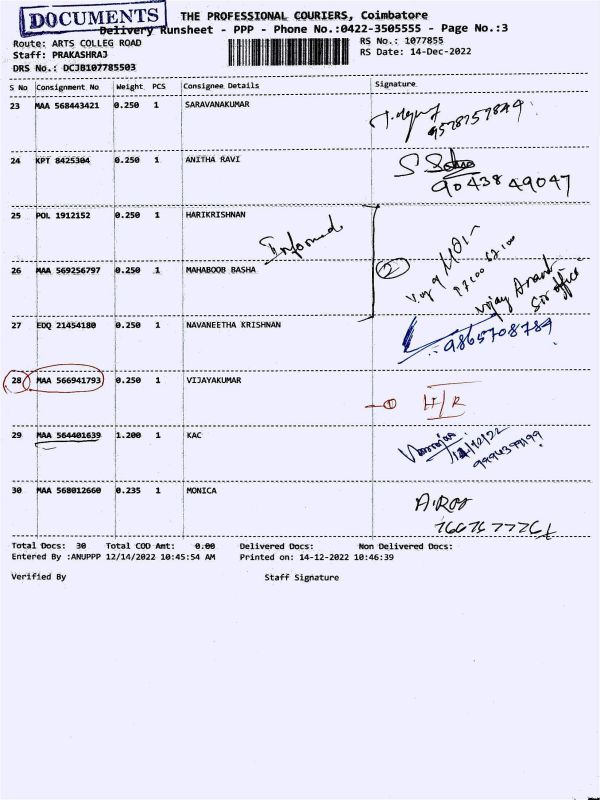 DOCUMENTS
THE PROFESSIONAL COURIERS, Coimbatore
Delivery Runsheet - PPP - Phone No.:0422-3505555 - Page No.:3
Route: ARTS COLLEG ROAD RS No.: 1077855
Staff: PRAKASHRAJ RS Date: 14-Dec-2022
DRS No.: DCJB107785503
S No Consignment No Weight PCS Consignee Details Signature
23 MAA 568443421 0.250 1 SARAVANAKUMAR
9578757844
24 KPT 8425304 0.250 1 ANITHA RAVI
9043849047
25 POL 1912152 0.250 1 HARIKRISHNAN
Informed
26 MAA 569256797 0.250 1 MAHABOOB BASHA
2
Vijay Anand
Sir office
27 EDQ 21454180 0.250 1 NAVANEETHA KRISHNAN
9865708784
28 MAA 566941793 0.250 1 VIJAYAKUMAR
1 H/R
29 MAA 564401639 1.200 1 KAC
14/12/22
30 MAA 568012660 0.235 1 MONICA
Total Docs: 30 Total COD Amt: 0.00 Delivered Docs: Non Delivered Docs:
Entered By :ANUPPP 12/14/2022 10:45:54 AM Printed on: 14-12-2022 10:46:39
Verified By Staff Signature